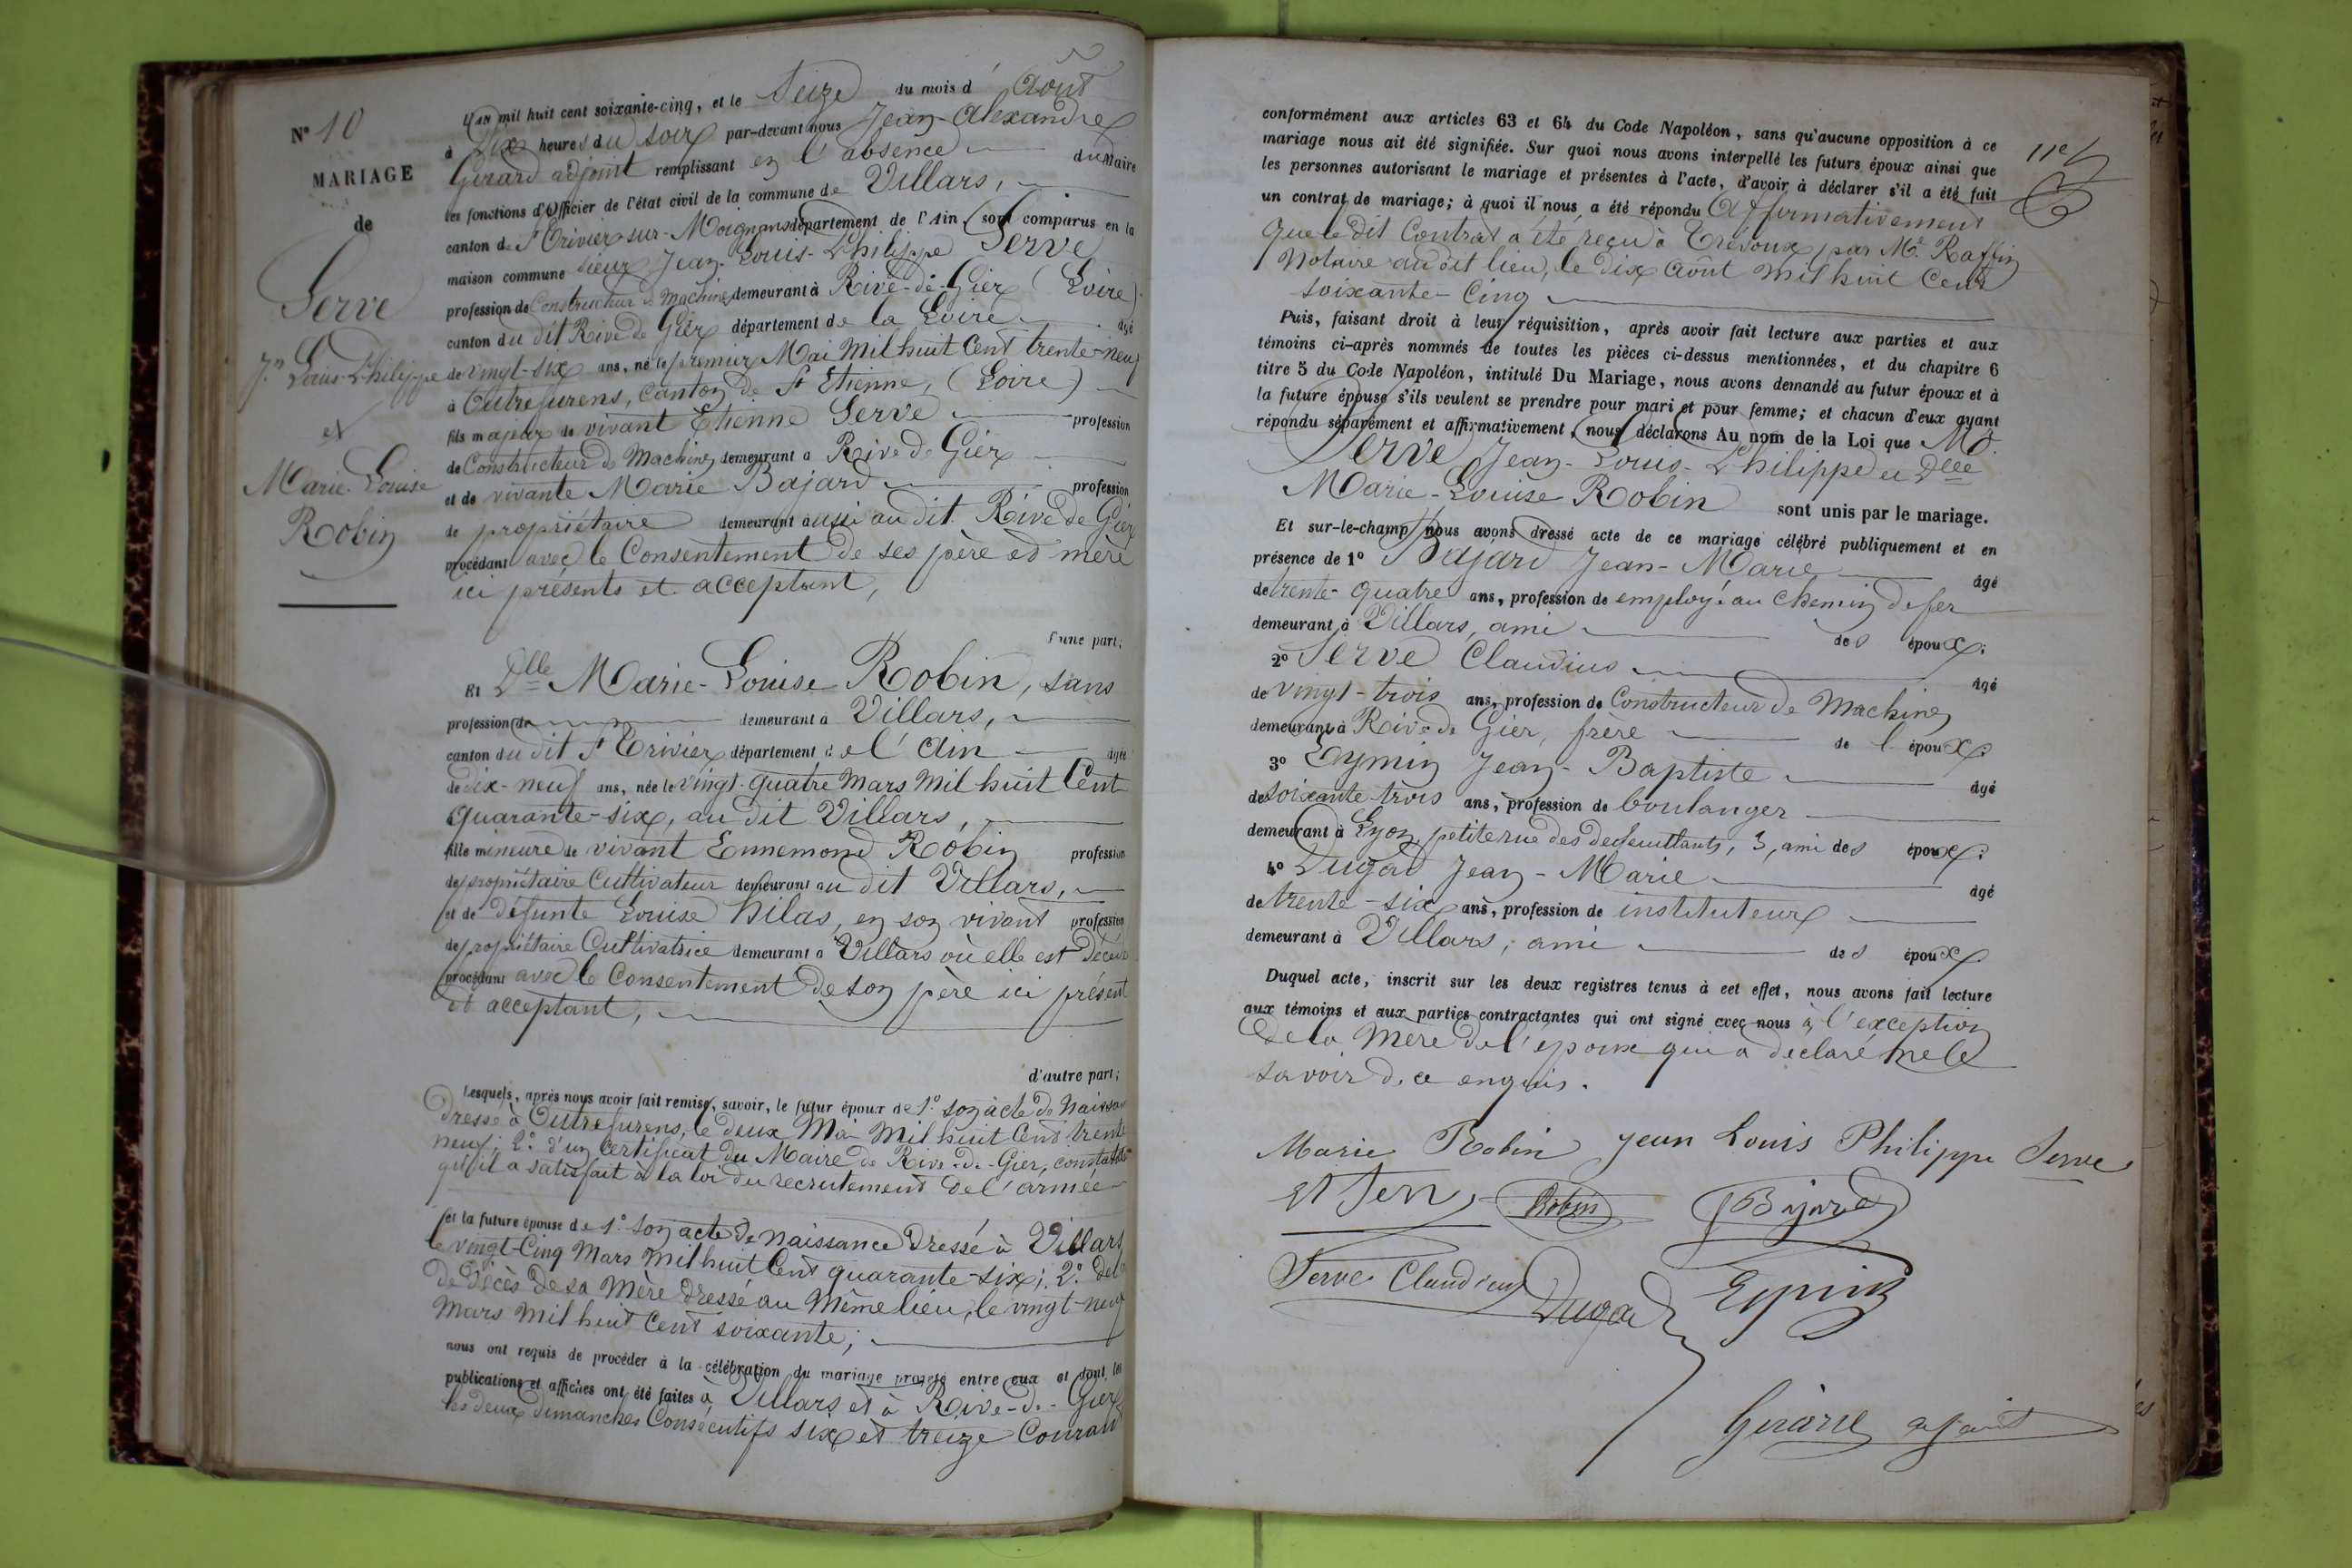 N° 10
MARIAGE
de
Serve
Jn Louis-Philippe
et
Marie-Louise
Robin
L'AN mil huit cent soixante-cinq, et le Seize du mois d'Août
à Dix heures du soir par-devant nous Jean-Alexandre
Girard adjoint remplissant en l'absence du Maire
les fonctions d'Officier de l'état civil de la commune de Villars,
canton de St Trivier-sur-Moignans département de l'Ain, sont comparus en la
maison commune sieur Jean-Louis-Philippe Serve
profession de Constructeur de Machines demeurant à Rive-de-Gier (Loire)
canton du dit Rive de Gier département de la Loire âgé
de vingt-six ans, né le premier Mai Mil huit Cent trente-neuf
à Outrefurens, Canton de St Etienne, (Loire)
fils majeur de vivant Etienne Serve profession
de Constructeur de Machines demeurant à Rive de Gier
et de vivante Marie Bajard profession
de propriétaire demeurant aussi au dit Rive de Gier
procédant avec le Consentement de ses père et mère
ici présents et acceptant,
d'une part;
Et Dlle Marie-Louise Robin, sans
profession de demeurant à Villars,
canton du dit St Trivier département de l'Ain âgée
de dix-neuf ans, née le vingt-quatre Mars Mil huit Cent
quarante-six, au dit Villars,
fille mineure de vivant Ennemond Robin profession
de propriétaire Cultivateur demeurant au dit Villars,
et de défunte Louise hilas, en son vivant profession
de propriétaire Cultivatrice demeurant à Villars où elle est Décédée
procédant avec le Consentement de son père ici présent
et acceptant,
d'autre part;
Lesquels, après nous avoir fait remise, savoir, le futur époux de 1° son acte de Naissance
dressé à Outrefurens, le deux Mai Mil huit Cent trente
neuf; 2° d'un Certificat du Maire de Rive-de-Gier, constatant
qu'il a satisfait à la loi du recrutement de l'armée
et la future épouse de 1° son acte de Naissance Dressé à Villars
le vingt-Cinq Mars Mil huit Cent quarante-six; 2° del
de Décès de sa Mère dressé au Même lieu, le vingt-neuf
Mars Mil huit Cent soixante;
nous ont requis de procéder à la célébration du mariage projeté entre eux et dont les
publications et affiches ont été faites à Villars et à Rive-de-Gier
les deux dimanches Consécutifs six et treize Courant
conformément aux articles 63 et 64 du Code Napoléon, sans qu'aucune opposition à ce
mariage nous ait été signifiée. Sur quoi nous avons interpellé les futurs époux ainsi que
les personnes autorisant le mariage et présentes à l'acte, d'avoir à déclarer s'il a été fait
un contrat de mariage; à quoi il nous a été répondu Affirmativement
que le dit Contrat a été reçu à Trévoux par Me Raffin
Notaire au dit lieu, le dix Août Mil huit Cent
soixante-Cinq
11e
Puis, faisant droit à leur réquisition, après avoir fait lecture aux parties et aux
témoins ci-après nommés de toutes les pièces ci-dessus mentionnées, et du chapitre 6
titre 5 du Code Napoléon, intitulé Du Mariage, nous avons demandé au futur époux et à
la future épouse s'ils veulent se prendre pour mari et pour femme; et chacun d'eux ayant
répondu séparément et affirmativement, nous déclarons Au nom de la Loi que Mr
Serve Jean-Louis-Philippe et Dlle
Marie-Louise Robin sont unis par le mariage.
Et sur-le-champ nous avons dressé acte de ce mariage célébré publiquement et en
présence de 1° Bajard Jean-Marie âgé
de trente-quatre ans, profession de employé au Chemin de fer
demeurant à Villars, ami des époux;
2° Serve Claudius âgé
de vingt-trois ans, profession de Constructeur de Machines
demeurant à Rive de Gier, frère de l'époux;
3° Eymin Jean-Baptiste âgé
de soixante-trois ans, profession de boulanger
demeurant à Lyon, petite rue des , 3, ami des époux;
4° Dugad Jean-Marie âgé
de trente-six ans, profession de instituteur
demeurant à Villars, ami des époux
Duquel acte, inscrit sur les deux registres tenus à cet effet, nous avons fait lecture
aux témoins et aux parties contractantes qui ont signé avec nous à l'exception
de la Mère de l'époux qui a déclaré ne le
savoir de ce enquis.
Marie Robin Jean Louis Philippe Serve
Et Serve Robin Bajard
Serve Claudius Dugad Eymin
Girard adjoint